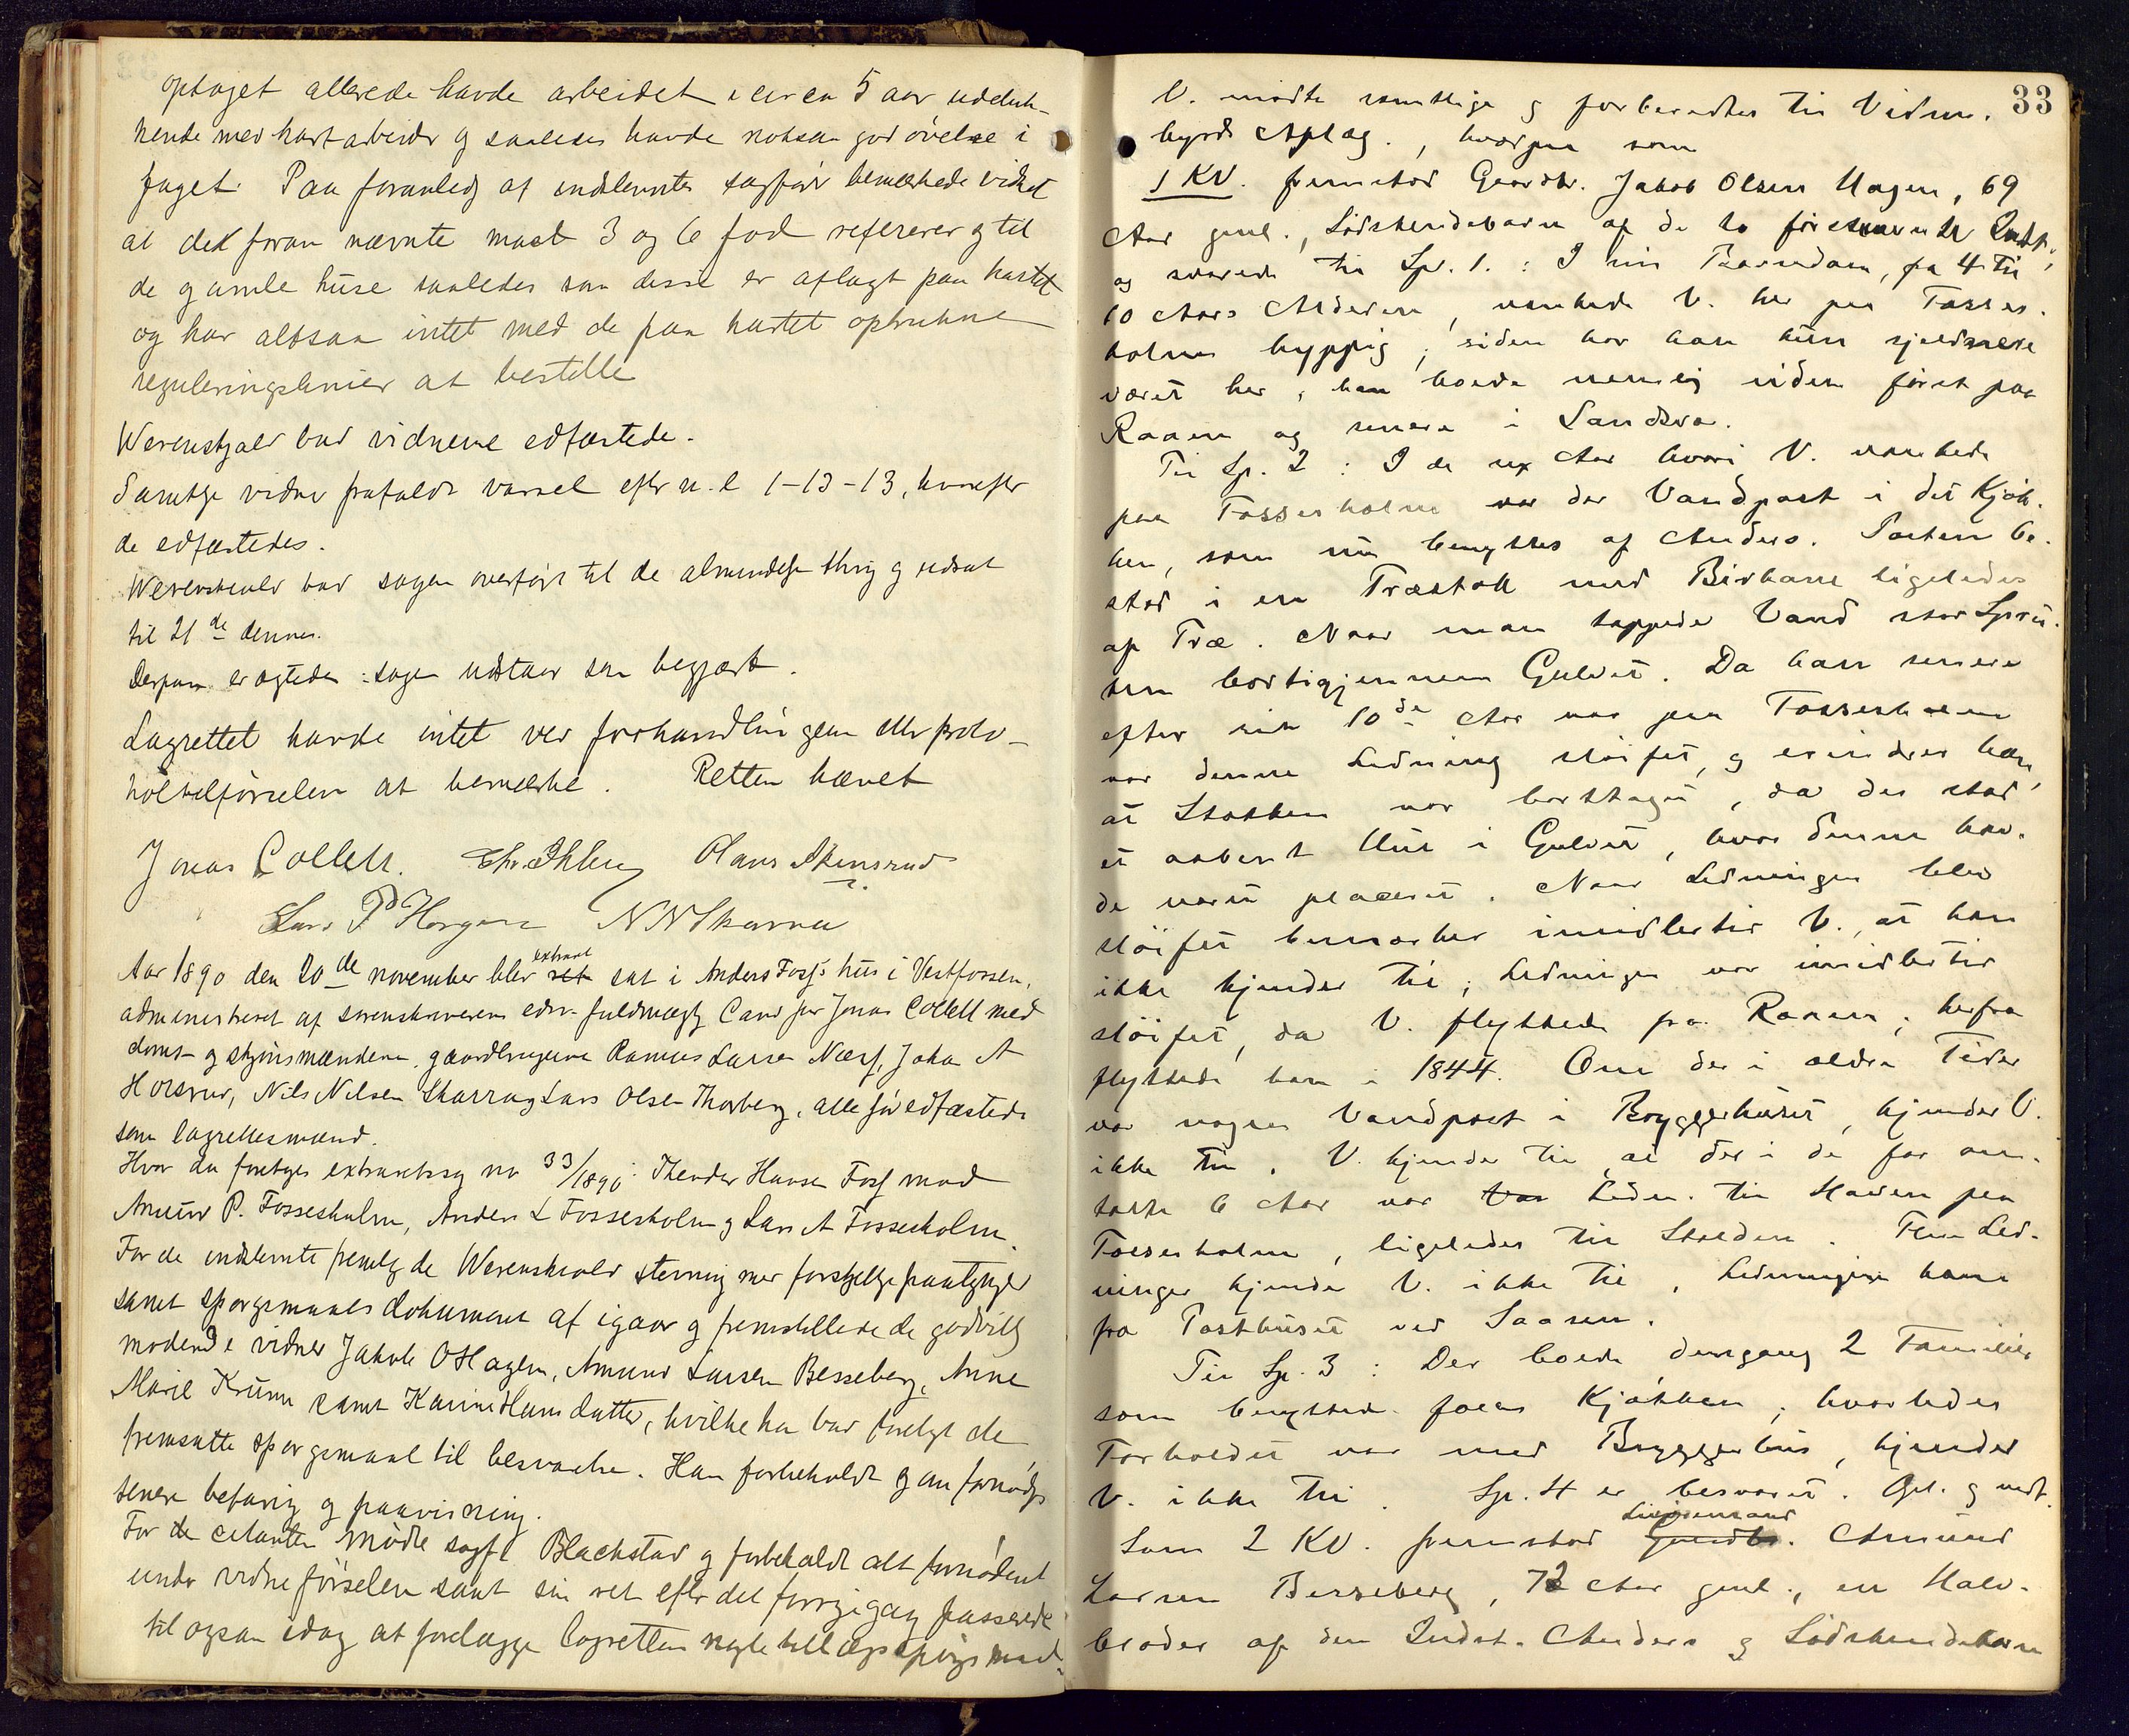 optaget allerede havde arbeidet i circa 5 aar udeluk-
kende med kartarbeider og saaledes havde noksaa god øvelse i
faget. Paa foranledg af indstevnte sagfører bemærkede vidnet
at det foran nævnte maal 3 og 6 fod refererer sig til
de gamle huse saaledes som disse er aflagt paa kartet
og har altsaa intet med de paa kartet optrukne
reguleringslinier at bestille
Werenskjold bad vidnerne edfæstede.
Samtlige vidner frafaldt varsel efter n. l 1-13-13, hvorefter
de edfæstedes.
Werenskiold bad sagen overført til de almindelige thing og udsat
til 21de dennes.
Derpaa eragtedes: sagen udstaar som begjært.
Lagrettet havde intet ved forhandlingen eller proto-
koltilførselen at bemærke. Retten hævet
Jonas Collett. Chr. Ihlen Olaus Stensrud
Lars P Horgen N N Skarra
Aar 1890 den 20de november blev ret extraret sat i Anders Foss's hus i Vestfossen,
administreret af sorenskriverens edsv. fuldmægtig Cand jur Jonas Collett med
doms- og skjønsmændene, gaardbrugerne Rasmus Larsen Næss, Johan A
Horsrud, Nils Nilsen Skarra og Lars Olsen Thorberg, alle før edfæstede
som lagrettesmænd.
Hvor da foretoges extraretssag no 33/1890: Theodor Hansen Foss mod
Amund P. Fossesholm, Anders L Fossesholm og Lars A Fossesholm.
For de indstevnte fremlagde Werenskiold stevning med forskjellige paategninger
samt spørgsmaals dokument af igaar og fremstillede de godvillig
mødende vidner Jakob O Hagen, Amund Larsen Besseberg, Anne
Marie Krum samt Karine Hansdatter, hvilke han bad forelagt de
fremsatte spørgsmaal til besvarelse. Han forbeholdt sig om fornødiges
senere befaring og paavisning.
For de citanten mødte sagf. Blackstad og forbeholdt alt fornødent
under vidneførselen samt sin ret efter det forrige gang passerede
til ogsaa idag at forelægge lagretten nogle tillægsspørgsmaal.
33
V. mødte samtlige og forberedtes til Vidne-
byrds Aflæg., hvorpaa som
1 KV. fremstod Gaardbr. Jakob Olsen Hagen, 69
Aar gml., Sødskendebarn af de to førstnævnte Indst.
og svarede til Sp. 1.: I sin Barndom, fra 4 til
10 Aars Alderen, vankede V. her paa Fosses-
holm hyppig; siden har han kun sjeldnere
været her; han boede nemlig siden først paa
Raaen og senere i Sandsvær.
Til Sp. 2: I de sex Aar hvori V. vankede
paa Fossesholm var der Vandpost i det Kjøk-
ken, som nu benyttes af Anders. Posten be-
stod i en Træstok med Birkane ligeledes
af Træ. Naar man tappede Vand stod Spru-
ten bortigjennem Gulvet. Da han senere
efter sit 10de Aar var paa Fossesholm
var denne Ledning sløifet, og erindrer han,
at Stokken var borttaget, da der stod
et aabent Hul i Gulvet, hvor denne hav-
de været placeret. Naar Ledningen blev
sløifet bemærker imidlertid V., at han
ikke kjender til; Ledningen var imidlertid
sløifet, da V. flyttede fra Raaen; herfra
flyttede han i 1844. Om der i ældre Tider
var nogen Vandpost i Bryggerhuset, kjender V.
ikke til. V. kjender til at der i de før om-
talte 6 Aar var Van Ledn. til Haven paa
Fossesholm, ligeledes til Stalden. Flere Led-
ninger kjender V. ikke til. Ledningen kom
fra Posthuset ved Saasen.
Til Sp. 3: Der boede dengang 2 Familier
som benyttede fælles Kjøkken; hvorledes
Forholdet var med Bryggerhus, kjender
V. ikke til. Sp. 4 er besvaret. Opl. og vedt.
Som 2 KV. fremstod Gaardbr. Inderstmand Amund
Larsen Besseberg, 72 Aar gml., en Halv-
broder af den Indst. Anders og Sødskendebarn